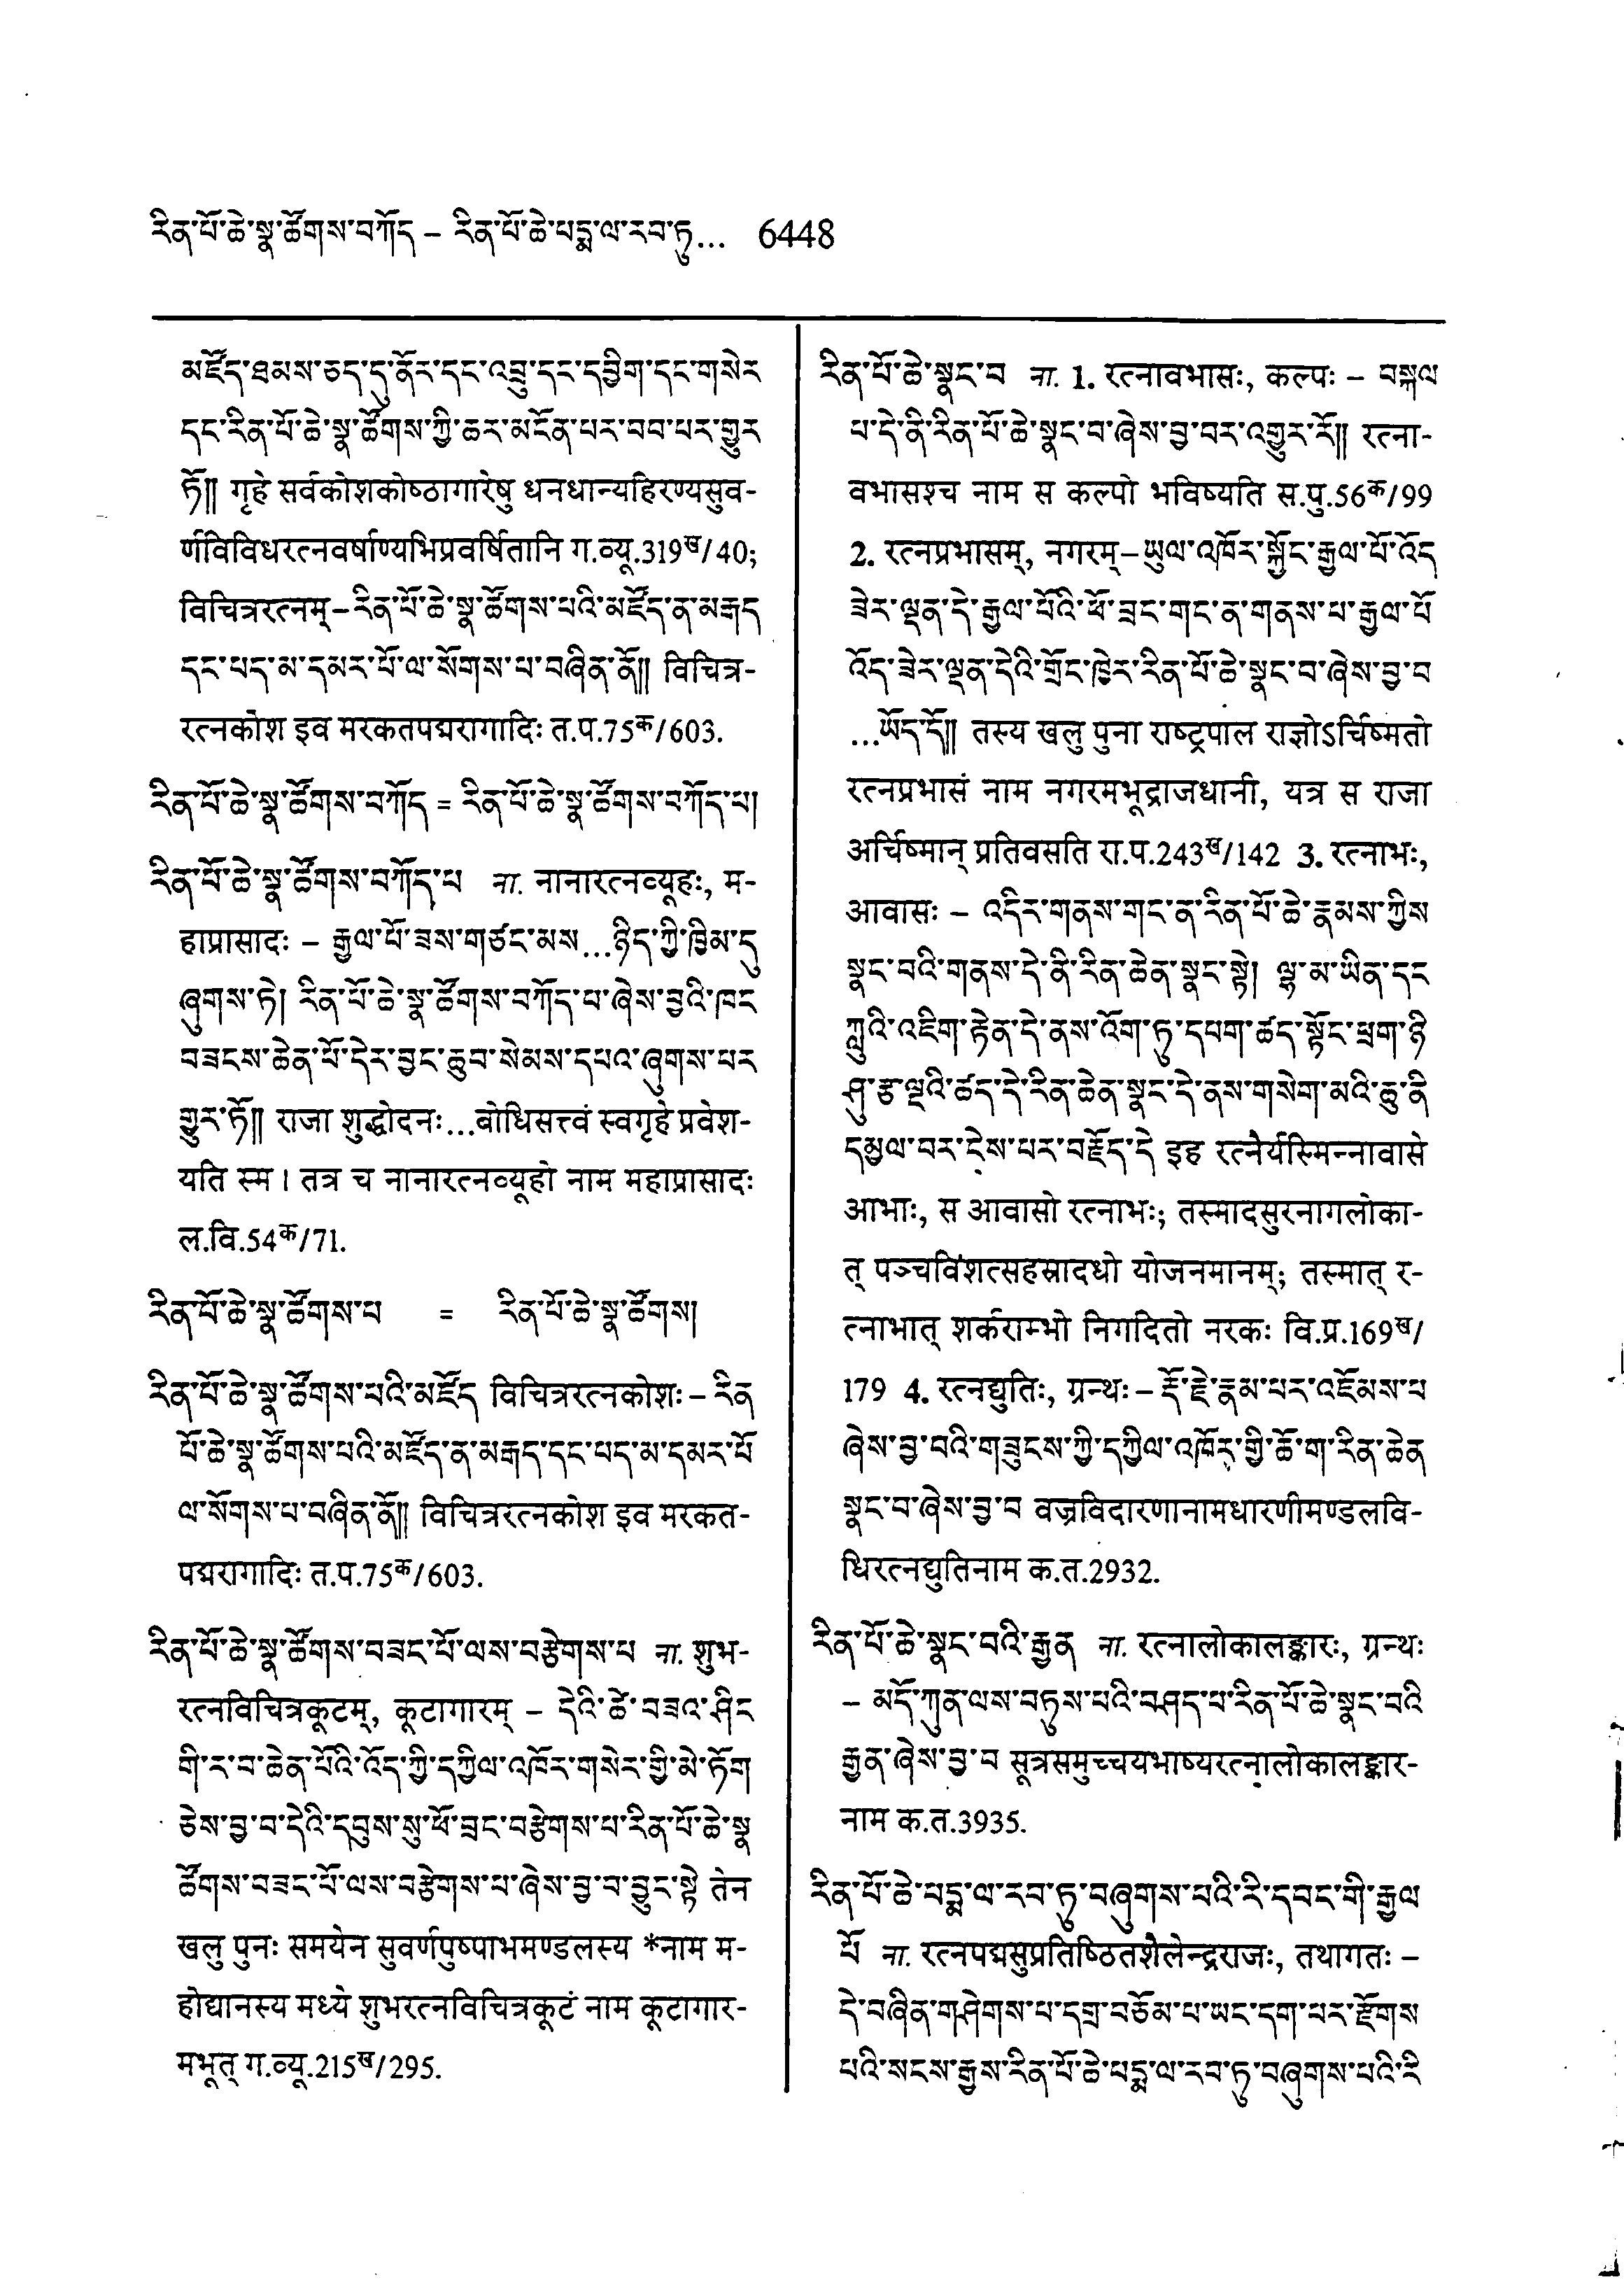 རིན་པོ་ཆེ་སྣ་ཚོགས་བཀོད – རིན་པོ་ཆེ་པདྨ་ལ་རབ་ཏུ... 6448
མཛོད་ཐམས་ཅད་དུ་ནོར་དང་འབྲུ་དང་དབྱིག་དང་གསེར
དང་རིན་པོ་ཆེ་སྣ་ཚོགས་ཀྱི་ཆར་མངོན་པར་བབ་པར་གྱུར
ཏོ།། गृहे सर्वकोशकोष्ठागारेषु धनधान्यहिरण्यसुव-
र्णविविधरत्नवर्षाण्यभिप्रवर्षितानि ग.व्यू.319ख/40;
विचित्ररत्नम् – རིན་པོ་ཆེ་སྣ་ཚོགས་པའི་མཛོད་ན་མརྒད
དང་པད་མ་དམར་པོ་ལ་སོགས་པ་བཞིན་ནོ།། विचित्र-
रत्नकोश इव मरकतपद्मरागादिः त.प.75क/603.
རིན་པོ་ཆེ་སྣ་ཚོགས་བཀོད = རིན་པོ་ཆེ་སྣ་ཚོགས་བཀོད་པ།
རིན་པོ་ཆེ་སྣ་ཚོགས་བཀོད་པ ना. नानारत्नव्यूहः, म-
हाप्रासादः – རྒྱལ་པོ་ཟས་གཙང་མས...ཉིད་ཀྱི་ཁྱིམ་དུ
ཞུགས་ཏེ། རིན་པོ་ཆེ་སྣ་ཚོགས་བཀོད་པ་ཞེས་བྱའི་ཁང
བཟངས་ཆེན་པོ་དེར་བྱང་ཆུབ་སེམས་དཔའ་ཞུགས་པར
གྱུར་ཏོ།། राजा शुद्धोदनः...बोधिसत्त्वं स्वगृहे प्रवेश-
यति स्म । तत्र च नानारत्नव्यूहो नाम महाप्रासादः
ल.वि.54क/71.
རིན་པོ་ཆེ་སྣ་ཚོགས་པ = རིན་པོ་ཆེ་སྣ་ཚོགས།
རིན་པོ་ཆེ་སྣ་ཚོགས་པའི་མཛོད विचित्ररत्नकोशः – རིན
པོ་ཆེ་སྣ་ཚོགས་པའི་མཛོད་ན་མརྒད་དང་པད་མ་དམར་པོ
ལ་སོགས་པ་བཞིན་ནོ།། विचित्ररत्नकोश इव मरकत-
पद्मरागादिः त.प.75क/603.
རིན་པོ་ཆེ་སྣ་ཚོགས་བཟང་པོ་ལས་བརྩེགས་པ ना. शुभ-
रत्नविचित्रकूटम्, कूटागारम् – དེའི་ཚེ་བཟའ་ཤིང
གི་ར་བ་ཆེན་པོའི་འོད་ཀྱི་དཀྱིལ་འཁོར་གསེར་གྱི་མེ་ཏོག
ཅེས་བྱ་བ་དེའི་དབུས་སུ་ཕོ་བྲང་བརྩེགས་པ་རིན་པོ་ཆེ་སྣ
ཚོགས་བཟང་པོ་ལས་བརྩེགས་པ་ཞེས་བྱ་བ་བྱུང་སྟེ तेन
खलु पुनः समयेन सुवर्णपुष्पाभमण्डलस्य *नाम म-
होद्यानस्य मध्ये शुभरत्नविचित्रकूटं नाम कूटागार-
मभूत् ग.व्यू.215ख/295.
རིན་པོ་ཆེ་སྣང་བ ना. 1. रत्नावभासः, कल्पः – བསྐལ
པ་དེ་ནི་རིན་པོ་ཆེ་སྣང་བ་ཞེས་བྱ་བར་འགྱུར་རོ།། रत्ना-
वभासश्च नाम स कल्पो भविष्यति स.पु.56क/99
2. रत्नप्रभासम्, नगरम् – ཡུལ་འཁོར་སྐྱོང་རྒྱལ་པོ་འོད
ཟེར་ལྡན་དེ་རྒྱལ་པོའི་ཕོ་བྲང་གང་ན་གནས་པ་རྒྱལ་པོ
འོད་ཟེར་ལྡན་དེའི་གྲོང་ཁྱེར་རིན་པོ་ཆེ་སྣང་བ་ཞེས་བྱ་བ
...ཡོད་དོ།། तस्य खलु पुना राष्ट्रपाल राज्ञोऽर्चिष्मतो
रत्नप्रभासं नाम नगरमभूद्राजधानी, यत्र स राजा
अर्चिष्मान् प्रतिवसति रा.प.243ख/142 3. रत्नाभः,
आवासः – འདིར་གནས་གང་ན་རིན་པོ་ཆེ་རྣམས་ཀྱིས
སྣང་བའི་གནས་དེ་ནི་རིན་ཆེན་སྣང་སྟེ། ལྷ་མ་ཡིན་དང
ཀླུའི་འཇིག་རྟེན་དེ་ནས་འོག་ཏུ་དཔག་ཚད་སྟོང་ཕྲག་ཉི
ཤུ་རྩ་ལྔའི་ཚད་དེ་རིན་ཆེན་སྣང་དེ་ནས་གསེག་མའི་ཆུ་ནི
དམྱལ་བར་ངེས་པར་བརྗོད་དེ इह रत्नैर्यस्मिन्नावासे
आभाः, स आवासो रत्नाभः; तस्मादसुरनागलोका-
त् पञ्चविंशत्सहस्रादधो योजनमानम्; तस्मात् र-
त्नाभात् शर्कराम्भो निगदितो नरकः वि.प्र.169ख/
179 4. रत्नद्युतिः, ग्रन्थः – རྡོ་རྗེ་རྣམ་པར་འཇོམས་པ
ཞེས་བྱ་བའི་གཟུངས་ཀྱི་དཀྱིལ་འཁོར་གྱི་ཆོ་ག་རིན་ཆེན
སྣང་བ་ཞེས་བྱ་བ वज्रविदारणानामधारणीमण्डलवि-
धिरत्नद्युतिनाम क.त.2932.
རིན་པོ་ཆེ་སྣང་བའི་རྒྱན ना. रत्नालोकालङ्कारः, ग्रन्थः
– མདོ་ཀུན་ལས་བཏུས་པའི་བཤད་པ་རིན་པོ་ཆེ་སྣང་བའི
རྒྱན་ཞེས་བྱ་བ सूत्रसमुच्चयभाष्यरत्नालोकालङ्कार-
नाम क.त.3935.
རིན་པོ་ཆེ་པདྨ་ལ་རབ་ཏུ་བཞུགས་པའི་རི་དབང་གི་རྒྱལ
པོ ना. रत्नपद्मसुप्रतिष्ठितशैलेन्द्रराजः, तथागतः –
དེ་བཞིན་གཤེགས་པ་དགྲ་བཅོམ་པ་ཡང་དག་པར་རྫོགས
པའི་སངས་རྒྱས་རིན་པོ་ཆེ་པདྨ་ལ་རབ་ཏུ་བཞུགས་པའི་རི